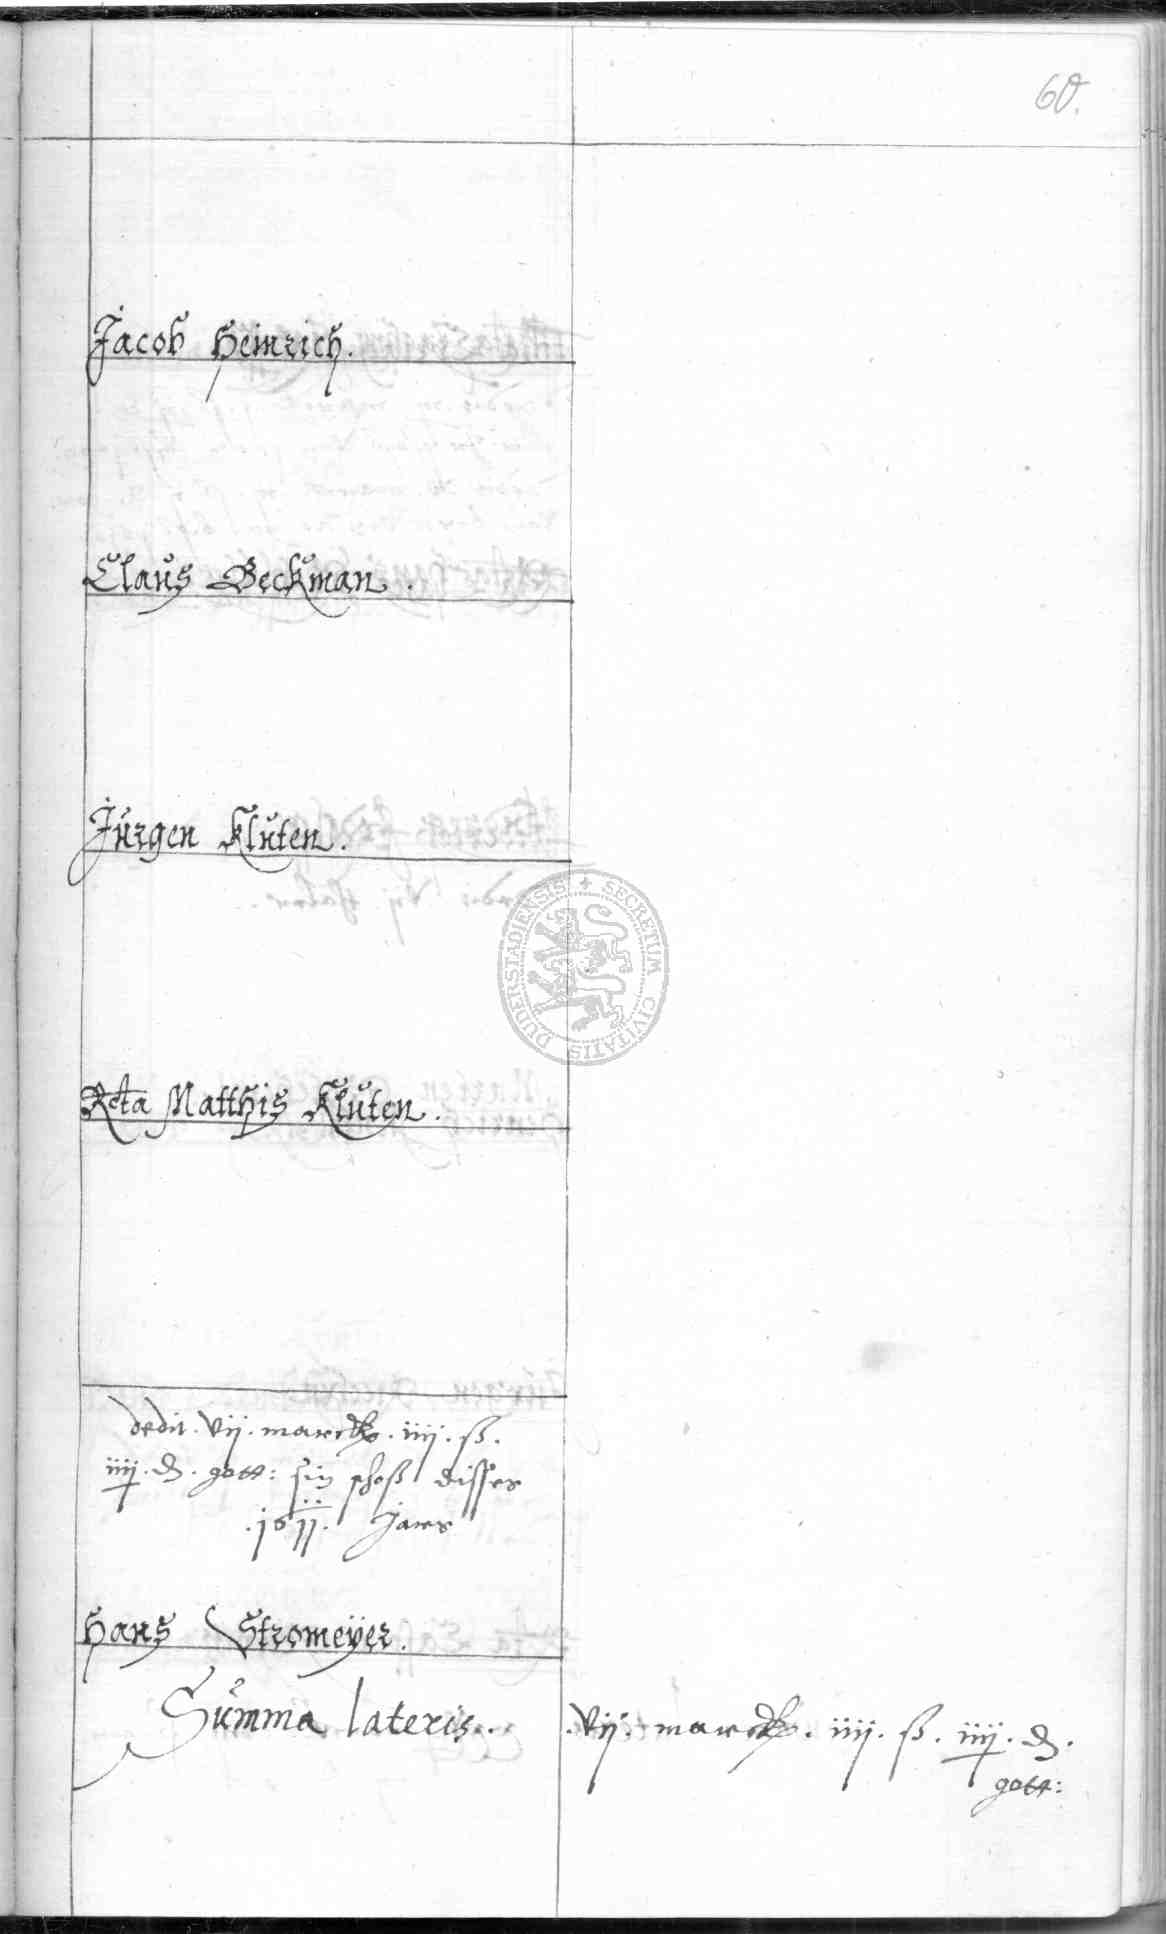 60.
Jacob Heinrich.
Claus Beckman.
Jürgen Kluten.
SECRETUM CIVITATIS DUDERSTADIENSIS
Rcta Matthis Kluten.
dedit. vij. marck. iiij. ß.
iiij. d. gott: sin schoß disses
.1611. Jars
Hans Stromeÿer.
Summa lateris. .vij. marck. iiij. ß. iiij. d.
gott: